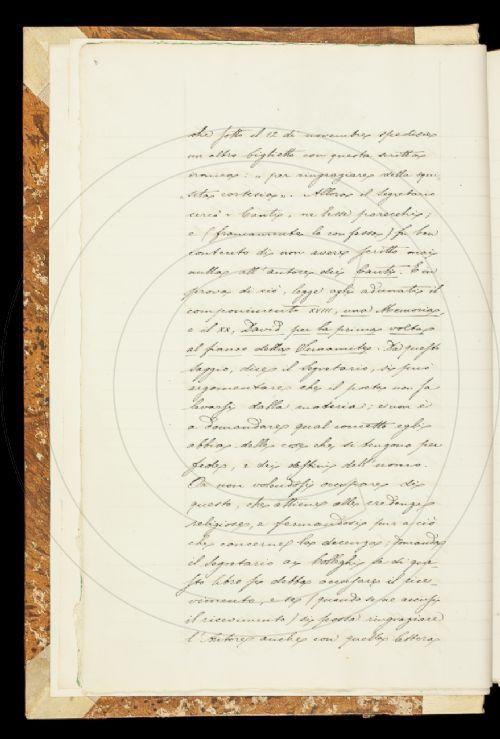 che sotto il 12 di novembre spedisce
un altro biglietto con questa scritta
ironica: "per ringraziare della squi-
sita cortesia". Allora il Segretario
cercò i Canti, ne lesse parecchi;
e (francamente lo confessa) fu ben
contento di non avere scritto mai
nulla all'autore dei Canti. E in
prova di ciò, legge agli adunati il
componimento XVIII, una Memoria
e il XX, David per la prima volta
al fianco della Sunamite. Da questo
saggio, dice il Segretario, si può
argomentare che il poeta non sa
levarsi dalla materia; e non è
a domandare qual concetto egli
abbia delle cose che si tengono per
fede, e dei destini dell'uomo.
Or non volendosi occupare di
questo, che attiene alle credenze
religiose, e fermandosi pur a ciò
che concerne la decenza; domanda
il Segretario ai Colleghi se di que-
sto libro si debba accusare il rice-
vimento, e se (quando se ne accusi
il ricevimento) si possa ringraziare
l'Autore anche con quella lettera